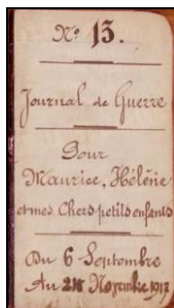 No 13.
Journal de Guerre
Pour
Maurice, Hélène
et mes Chers petits enfants
Du 6 Septembre
Au 28 Novembre 1917